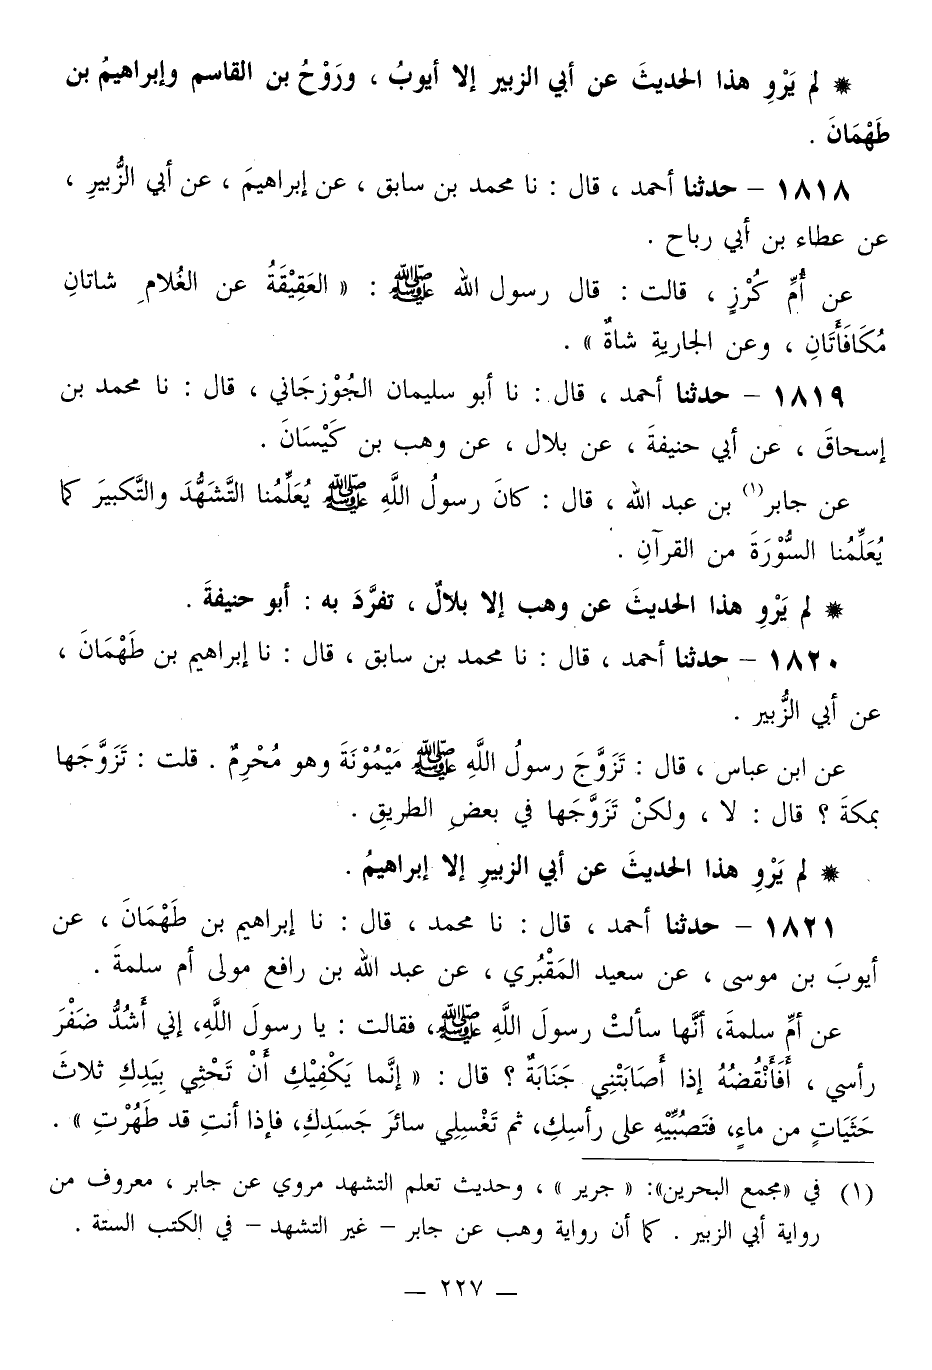 * لم يَرْوِ هذا الحديثَ عن أبي الزبير إلا أيوبُ ، ورَوْحُ بن القاسم وإبراهيمُ بن
طَهْمَانَ .
١٨١٨ – حدثنا أحمد ، قال : نا محمد بن سابق ، عن إبراهيمَ ، عن أبي الزُّبيرِ ،
عن عطاء بن أبي رباح .
عن أُمِّ كُرْزٍ ، قالت : قال رسول الله ﷺ : « العَقِيْقَةُ عن الغُلامِ شاتانِ
مُكَافَأَتَانِ ، وعن الجاريةِ شاةٌ » .
١٨١٩ – حدثنا أحمد ، قال : نا أبو سليمان الجُوْزجَاني ، قال : نا محمد بن
إسحاقَ ، عن أبي حنيفةَ ، عن بلال ، عن وهب بن كَيْسَانَ .
عن جابر(١) بن عبد الله ، قال : كانَ رسولُ اللَّهِ ﷺ يُعَلِّمُنا التَّشَهُّدَ والتَّكبيرَ كما
يُعَلِّمُنا السُّوْرَةَ من القرآنِ .
* لم يَرْوِ هذا الحديثَ عن وهب إلا بلالٌ ، تفرَّدَ به : أبو حنيفةَ .
١٨٢٠ – حدثنا أحمد ، قال : نا محمد بن سابق ، قال : نا إبراهيم بن طَهْمَانَ ،
عن أبي الزُّبير .
عن ابن عباس ، قال : تَزَوَّجَ رسولُ اللَّهِ ﷺ مَيْمُوْنَةَ وهو مُحْرِمٌ . قلت : تَزَوَّجَها
بمكةَ ؟ قال : لا ، ولكنْ تَزَوَّجَها في بعضِ الطريقِ .
* لم يَرْوِ هذا الحديثَ عن أبي الزبيرِ إلا إبراهيمُ .
١٨٢١ – حدثنا أحمد ، قال : نا محمد ، قال : نا إبراهيم بن طَهْمَانَ ، عن
أيوبَ بن موسى ، عن سعيد المَقْبُري ، عن عبد الله بن رافع مولى أم سلمةَ .
عن أمِّ سلمةَ، أنَّها سألتْ رسولَ اللَّهِ ﷺ، فقالت : يا رسولَ اللَّهِ، إني أَشُدُّ ضَفْرَ
رأسي ، أَفَأَنْقُضُهُ إذا أصَابَتْنِي جَنَابَةٌ ؟ قال : « إنَّما يَكْفِيْكِ أَنْ تَحْثِي بِيَدِكِ ثلاثَ
حَثَيَاتٍ من ماءٍ، فتَصُبِّيْهِ على رأسِكِ، ثم تَغْسِلِي سائرَ جَسَدِكِ، فإذا أنتِ قد طَهُرْتِ » .
(١) في «مجمع البحرين»: « جرير » ، وحديث تعلم التشهد مروي عن جابر ، معروف من
رواية أبي الزبير . كما أن رواية وهب عن جابر – غير التشهد – في الكتب الستة .
– ٢٢٧ –